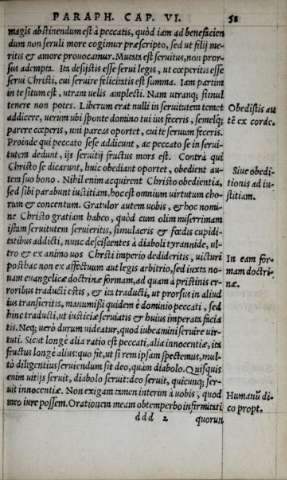 PARAPH. CAP. VI. 58
magis abstinendum est à peccatis, quòd iam ad beneficien
dum non seruli more cogimur præscripto, sed ut filij me-
ritis & amore prouocamur. Muta est seruitus, non pror-
sus adempta. Ita desijstis esse serui legis, ut cœperitis esse
serui Christi, cui seruire felicitatis est summa. Iam partim
in te situm est, utram uelis amplecti. Nam utranque simul
tenere non potes. Liberum erat nulli in seruitutem temet
addicere, uerum ubi sponte domino tui ius feceris, semelque
parere cœperis, uni pareas oportet, cui te seruum feceris.
Proinde qui peccato sese addicunt, ac peccato se in serui-
tutem dedunt, ijs seruitij fructus mors est. Contrà qui
Christo se dicarunt, huic obediant oportet, obedient au-
tem suo bono. Nihil enim acquirent Christo obedientia,
sed sibi parabunt iustitiam, hoc est omnium uirtutum cho-
rum & concentum. Gratulor autem uobis, & hoc nomi-
ne Christo gratiam habeo, quòd cum olim miserrimam
istam seruitutem serueritis, simulacris & fœdis cupidi-
tatibus addicti, nunc desciscentes à diaboli tyrannide, ul-
tro & ex animo uos Christi imperio dedideritis, uicturi
posthac non ex affectuum aut legis arbitrio, sed iuxta no-
uam euangelicæ doctrinæ formam, ad quam à pristinis er-
roribus traducti estis, & ita traducti, ut prorsus in aliud
ius transieritis, manumissi quidem è dominio peccati, sed
huc traducti, ut iusticiæ seruiatis & huius imperata facia
tis. Neque uerò durum uideatur, quod iubeamini seruire uir-
tuti. Sicut longè alia ratio est peccati, alia innocentiæ, ita
fructus longè alius: quo fit, ut si rem ipsam spectemus, mul-
tò diligentius seruiendum sit deo, quàm diabolo. Quisquis
enim uitijs seruit, diabolo seruit: deo seruit, quicunque ser-
uit innocentiæ. Non exigam tamen interim à uobis, quod
meo iure possem. Orationem meam obtempero infirmitati
ddd 2 quorun
Obedistis au
tē ex corde.
Siue obedi-
tionis ad iu-
stitiam.
In eam for-
mam doctri
næ.
Humanū di-
co propt.